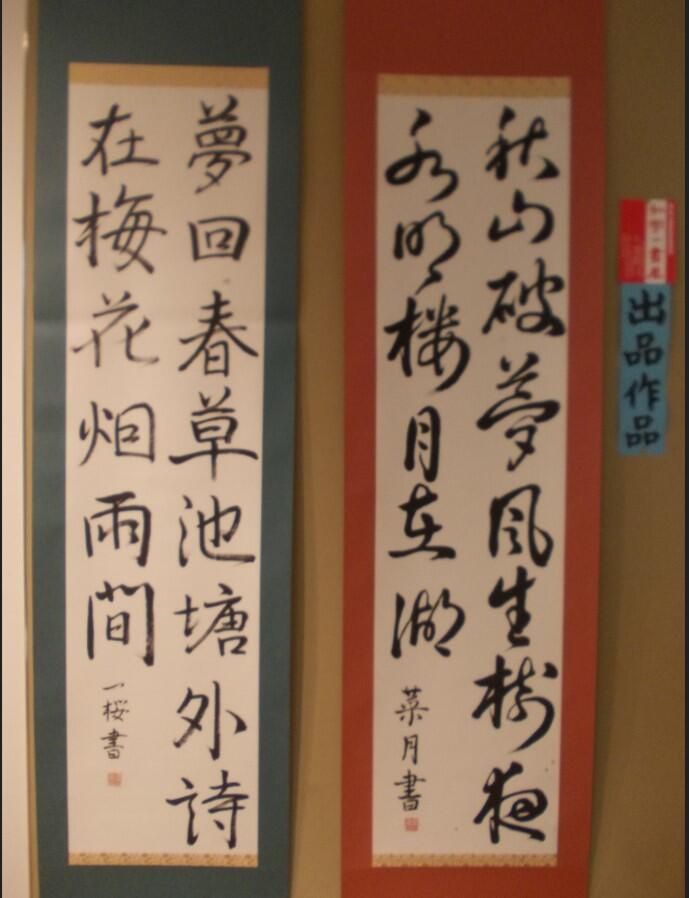 出品作品
秋山破夢風生樹夜
水明楼月在湖
菜月書
夢回春草池塘外詩
在梅花烟雨間
一桜書